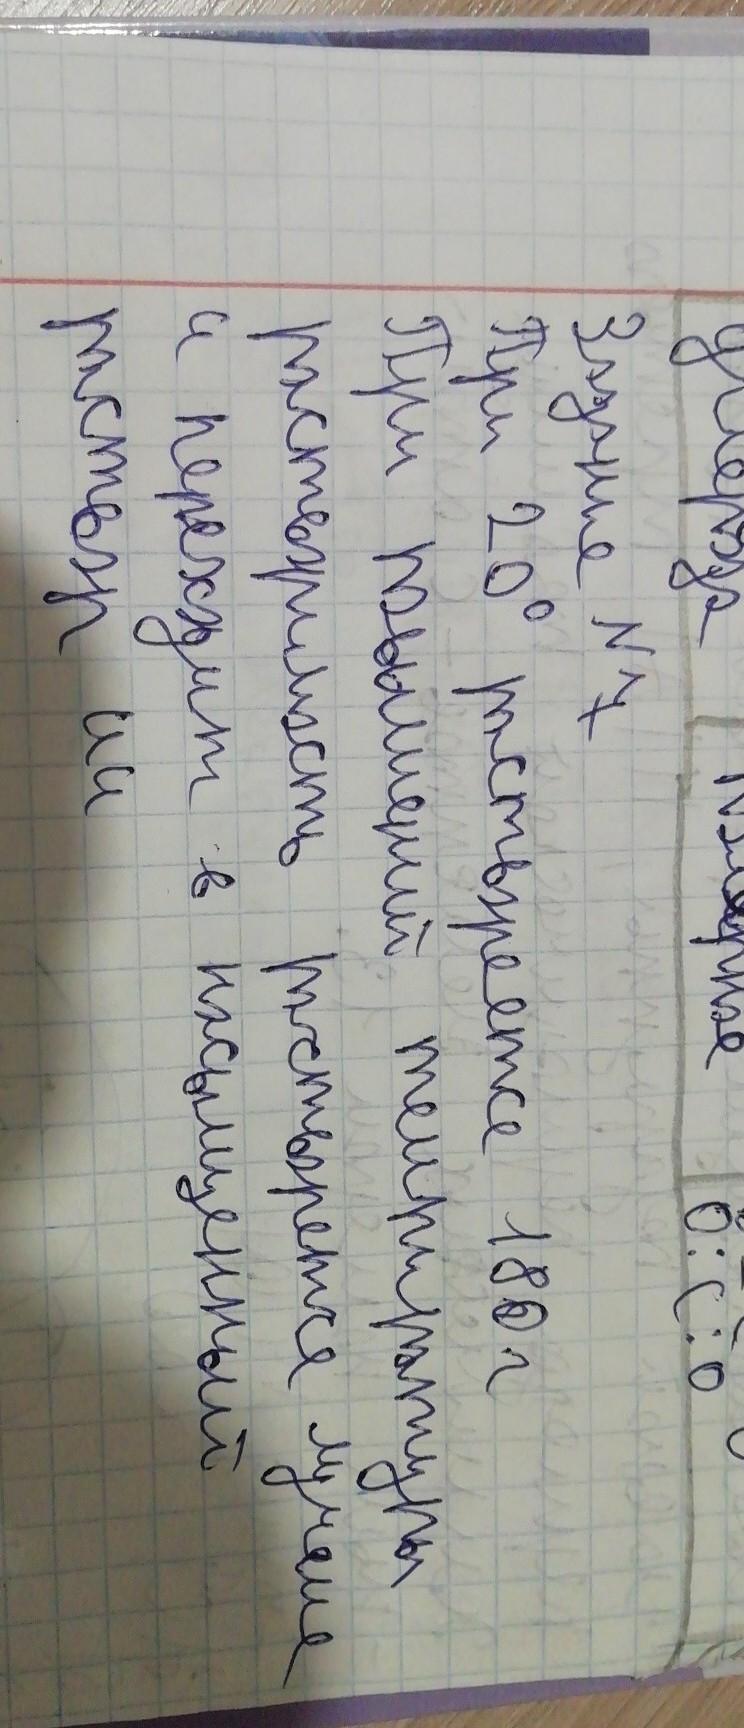 углерода
полярное
O::C::O
Задание N7
При 20° растворяется 180 г
При повышений температуры
растворимость растворетсе лучше
и переходит в насыщенный
раствор ии